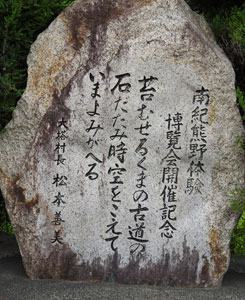 南紀熊野体験
博覧会開催記念
苔むせるくまの古道の
石だたみ時空をこえて
いまよみがへる
大塔村長 松本善美